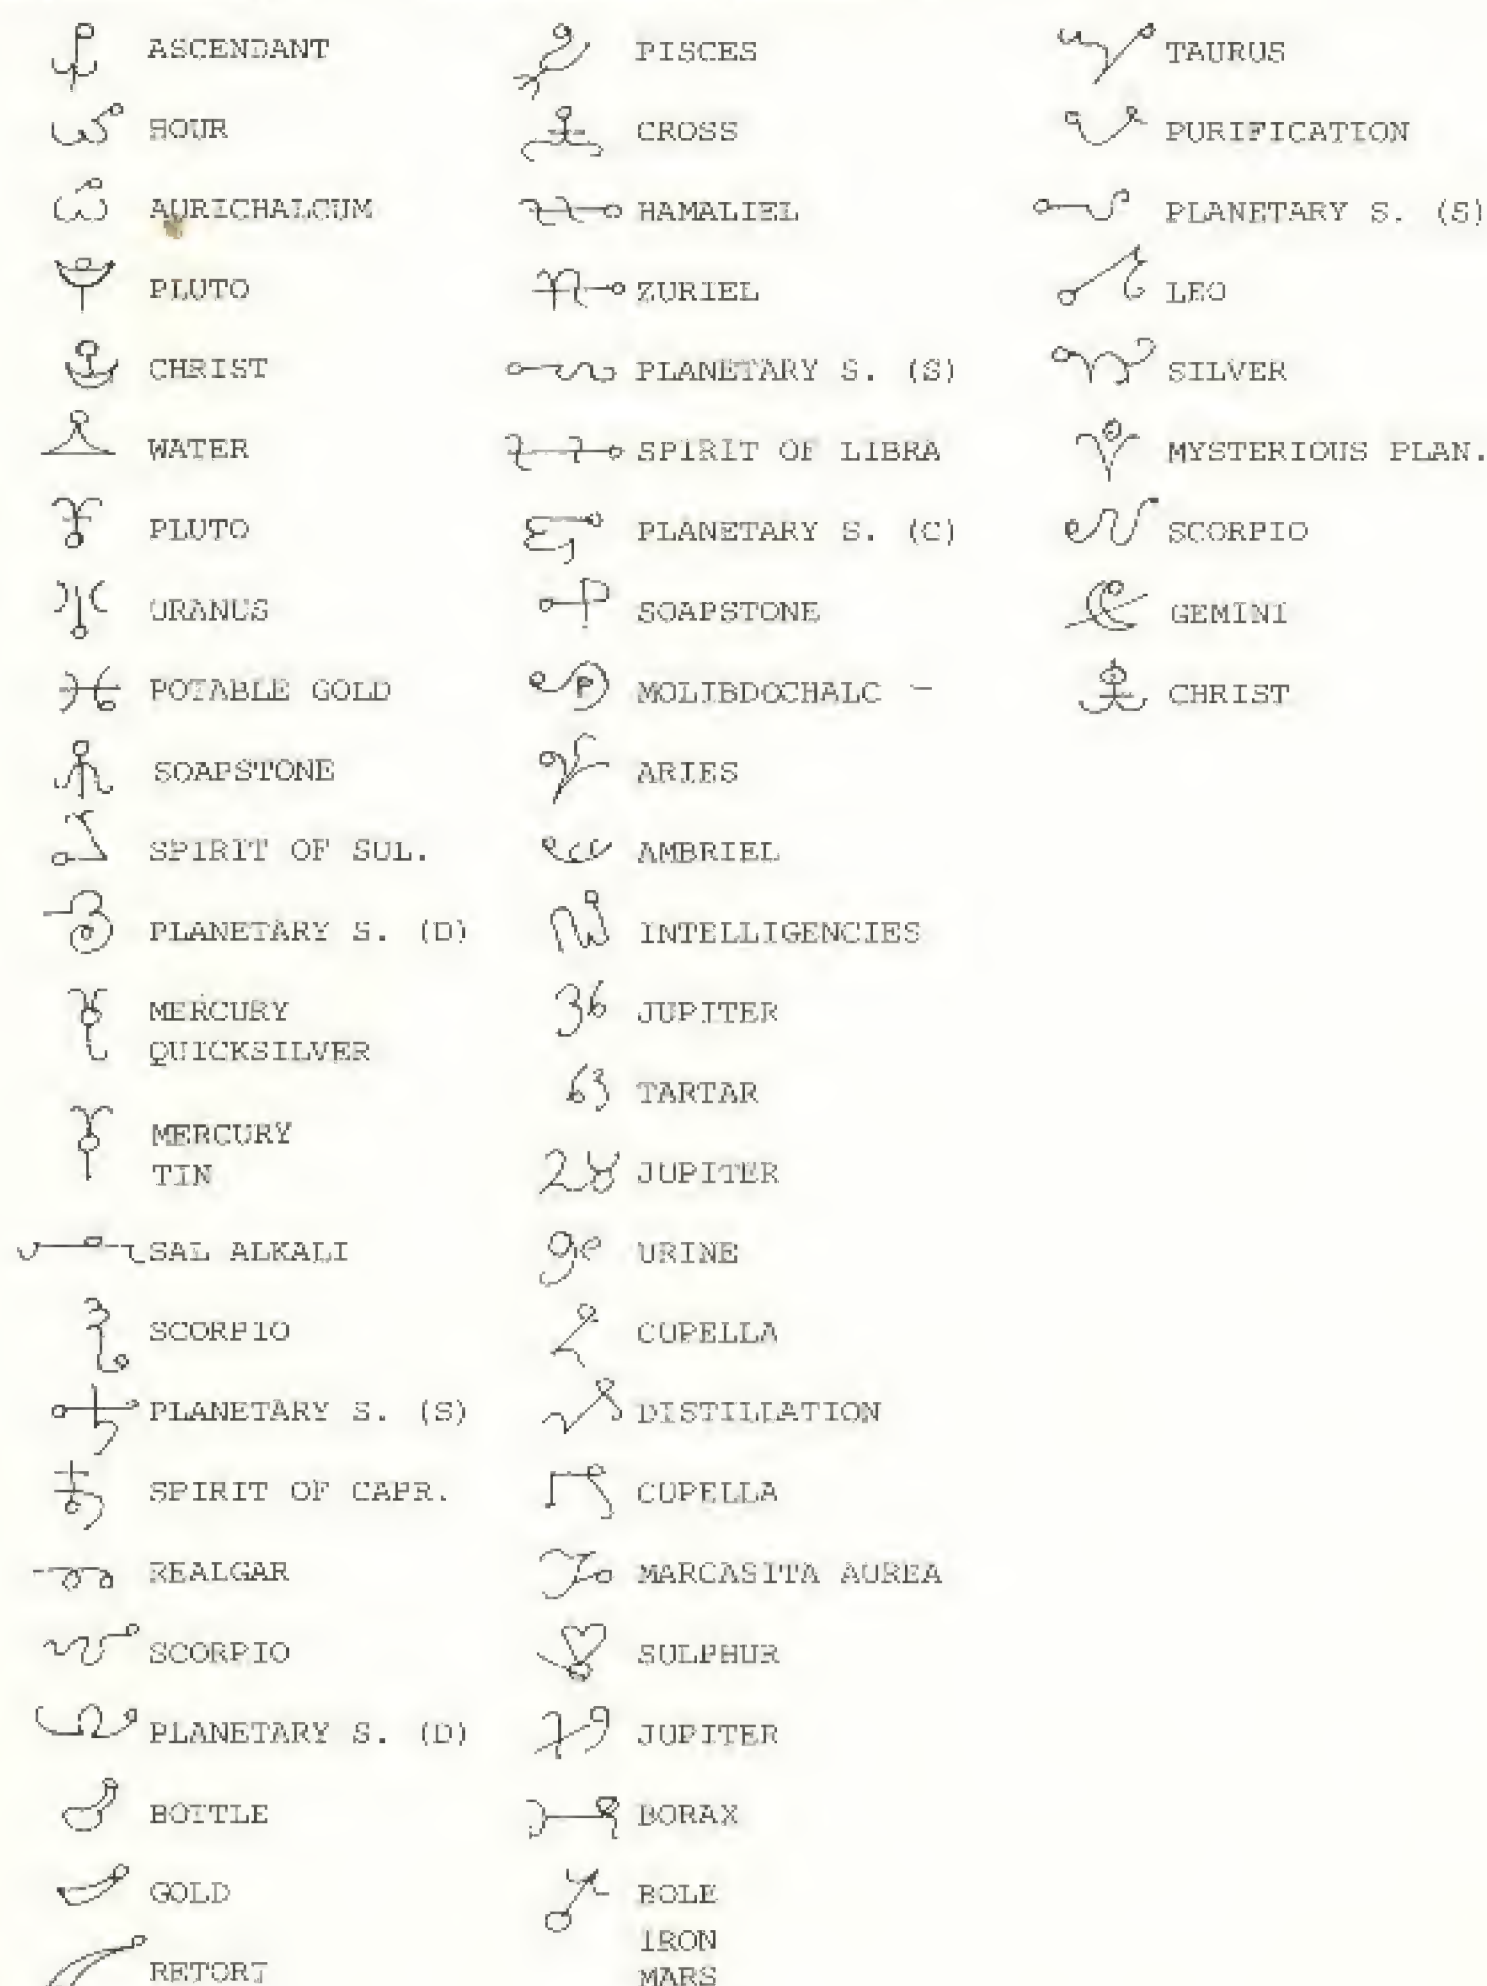 ASCENDANT
HOUR
AURICHALCUM
PLUTO
CHRIST
WATER
PLUTO
URANUS
POTABLE GOLD
SOAPSTONE
SPIRIT OF SUL.
PLANETARY S. (D)
MERCURY
QUICKSILVER
MERCURY
TIN
SAL ALKALI
SCORPIO
PLANETARY S. (S)
SPIRIT OF CAPR.
REALGAR
SCORPIO
PLANETARY S. (D)
BOTTLE
GOLD
RETORT
PISCES
CROSS
HAMALIEL
ZURIEL
PLANETARY S. (S)
SPIRIT OF LIBRA
PLANETARY S. (C)
SOAPSTONE
MOLIBDOCHALC –
ARIES
AMBRIEL
INTELLIGENCIES
JUPITER
TARTAR
JUPITER
URINE
COPELLA
DISTILLATION
CUPELLA
MARCASITA AUREA
SULPHUR
JUPITER
BORAX
BOLE
IRON
MARS
TAURUS
PURIFICATION
PLANETARY S. (S)
LEO
SILVER
MYSTERIOUS PLAN.
SCORPIO
GEMINI
CHRIST